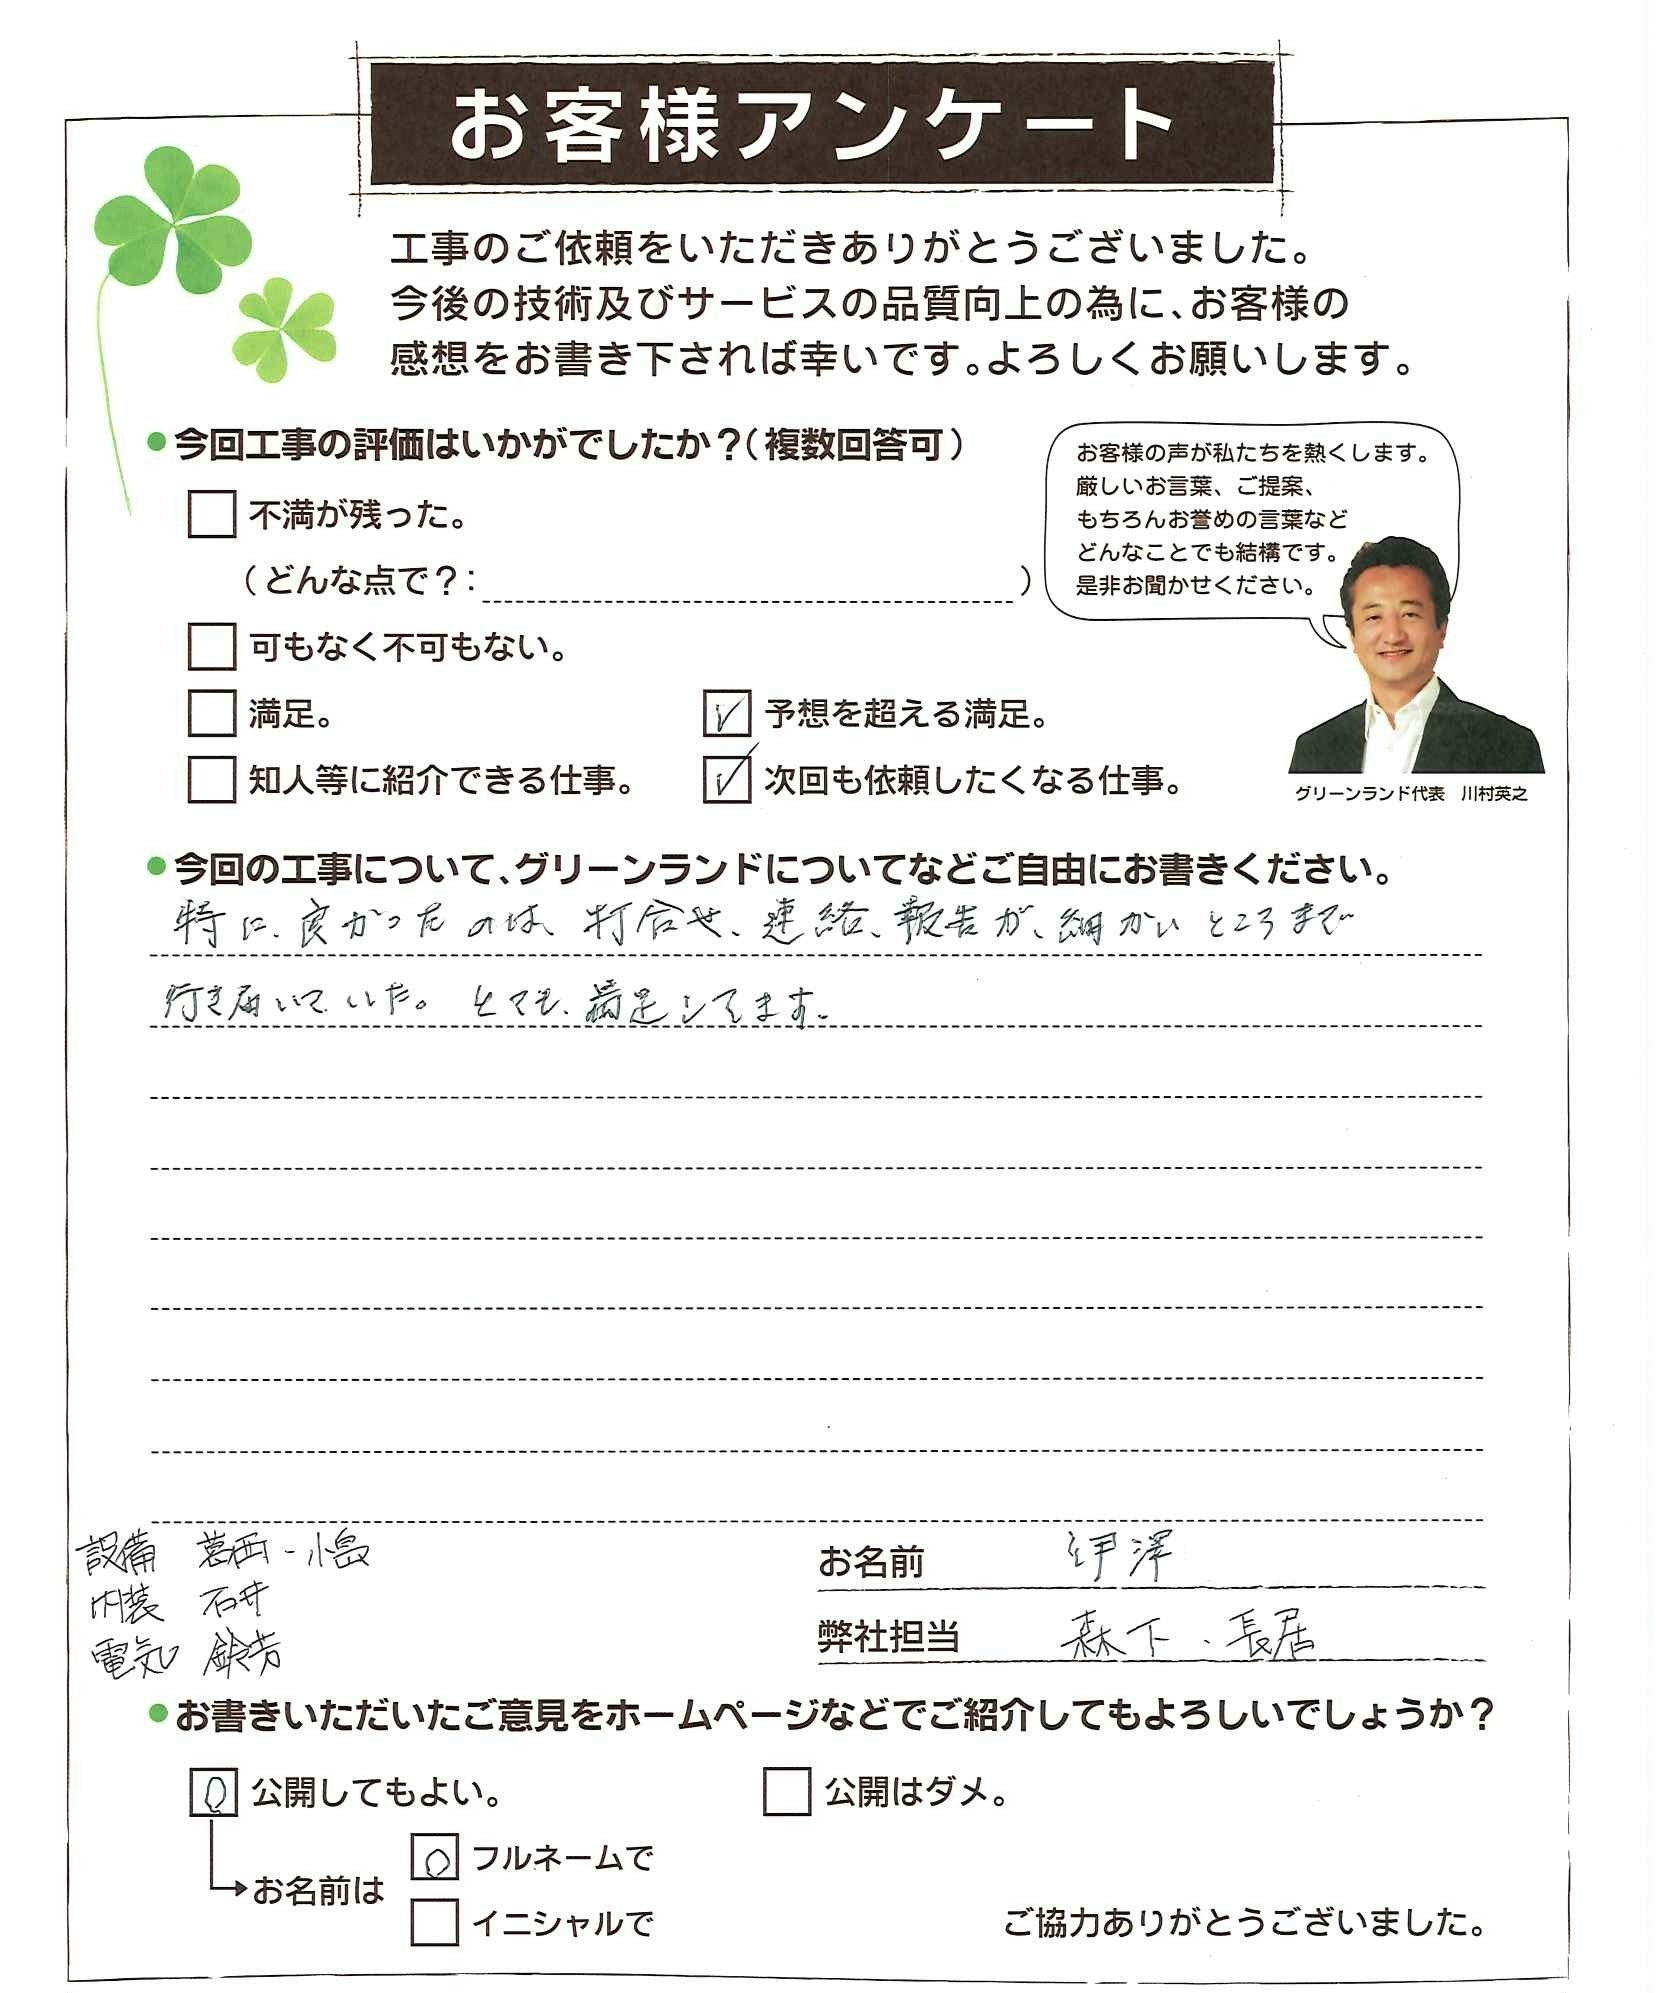 お客様アンケート
工事のご依頼をいただきありがとうございました。
今後の技術及びサービスの品質向上の為に、お客様の
感想をお書き下されば幸いです。よろしくお願いします。
●今回工事の評価はいかがでしたか？（複数回答可）
不満が残った。
（どんな点で？：　）
可もなく不可もない。
満足。
予想を超える満足。
知人等に紹介できる仕事。
次回も依頼したくなる仕事。
お客様の声が私たちを熱くします。
厳しいお言葉、ご提案、
もちろんお誉めの言葉など
どんなことでも結構です。
是非お聞かせください。
グリーンランド代表　川村英之
●今回の工事について、グリーンランドについてなどご自由にお書きください。
特に、良かったのは、打合せ、連絡、報告が、細かいところまで
行き届いていた。とても、満足してます。
設備　葛西・小島
内装　石井
電気　鈴芳
お名前　伊澤
弊社担当　森下、長居
●お書きいただいたご意見をホームページなどでご紹介してもよろしいでしょうか？
公開してもよい。
公開はダメ。
お名前は
フルネームで
イニシャルで
ご協力ありがとうございました。